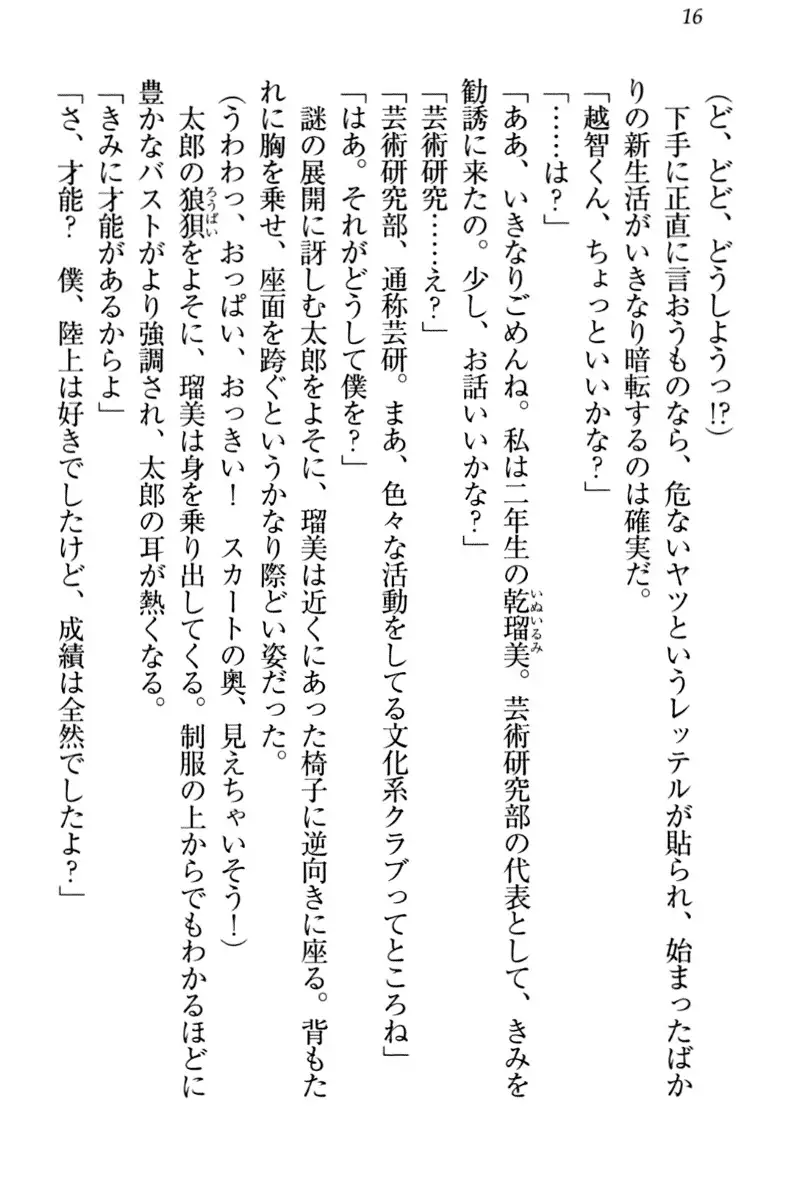 16
（ど、どど、どうしようっ!?）
　下手に正直に言おうものなら、危ないヤツというレッテルが貼られ、始まったばか
りの新生活がいきなり暗転するのは確実だ。
「越智くん、ちょっといいかな？」
「……は？」
「ああ、いきなりごめんね。私は二年生の乾瑠美。芸術研究部の代表として、きみを
勧誘に来たの。少し、お話いいかな？」
「芸術研究……え？」
「芸術研究部、通称芸研。まあ、色々な活動をしてる文化系クラブってところね」
「はあ。それがどうして僕を？」
　謎の展開に訝しむ太郎をよそに、瑠美は近くにあった椅子に逆向きに座る。背もた
れに胸を乗せ、座面を跨ぐというかなり際どい姿だった。
（うわわっ、おっぱい、おっきい！　スカートの奥、見えちゃいそう！）
　太郎の狼狽をよそに、瑠美は身を乗り出してくる。制服の上からでもわかるほどに
豊かなバストがより強調され、太郎の耳が熱くなる。
「きみに才能があるからよ」
「さ、才能？　僕、陸上は好きでしたけど、成績は全然でしたよ？」
いぬいるみ
ろうばい